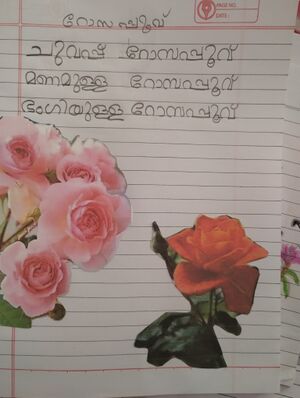 PAGE NO.
DATE:
റോസ പ്പൂവ്
ചുവപ്പ് റോസപ്പൂവ്
മണമുള്ള റോസപ്പൂവ്
ഭംഗിയുള്ള റോസപ്പൂവ്